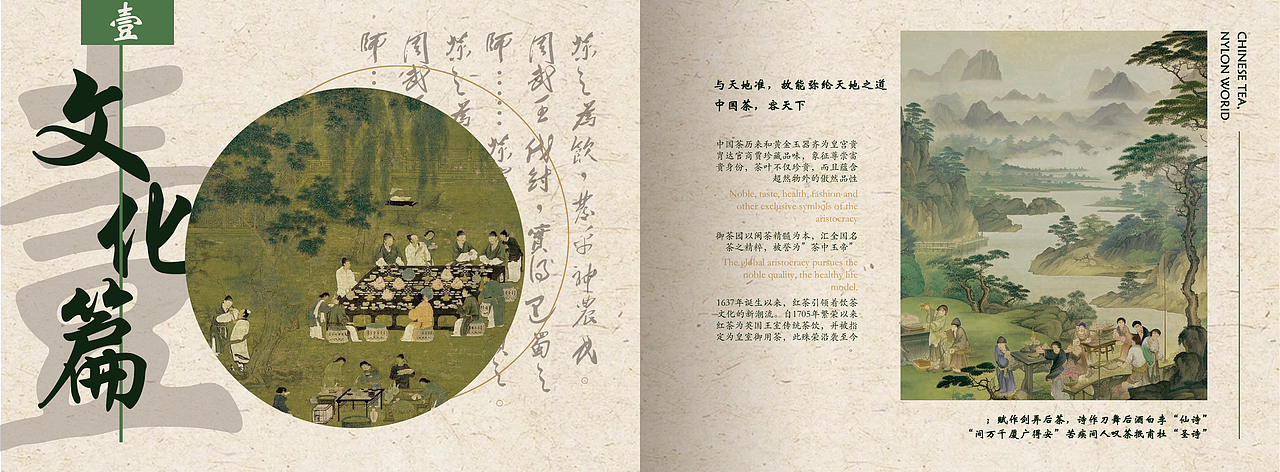 壹
文化篇
茶之為飲，發乎神農氏。
周武王伐紂，實得巴蜀之
師……茶
茶之為
周武
師……
与天地准，故能弥纶天地之道
中国茶，容天下
中国茶历来和黄金玉器齐为皇宫贵
胄达官商贾珍藏品味，象征尊崇富
贵身份，茶叶不仅珍贵，而且蕴含
超然物外的傲然品性
Noble, taste, health, fashion and
other exclusive symbols of the
aristocracy
御茶因以闽茶精髓为本，汇全国名
茶之精粹，被誉为”茶中王帝”
The global aristocracy pursues the
noble quality, the healthy life
model.
1637年诞生以来，红茶引领着饮茶
文化的新潮流。自1705年繁荣以来
红茶为英国王室传统茶饮，并被指
定为皇室御用茶，此殊荣沿袭至今
。
CHINESE TEA,
NYLON WORLD
“诗仙”李白酒后舞刀作诗，茶后弄剑作赋；
“诗圣”杜甫抵茶叹人间疾苦“安得广厦千万间”